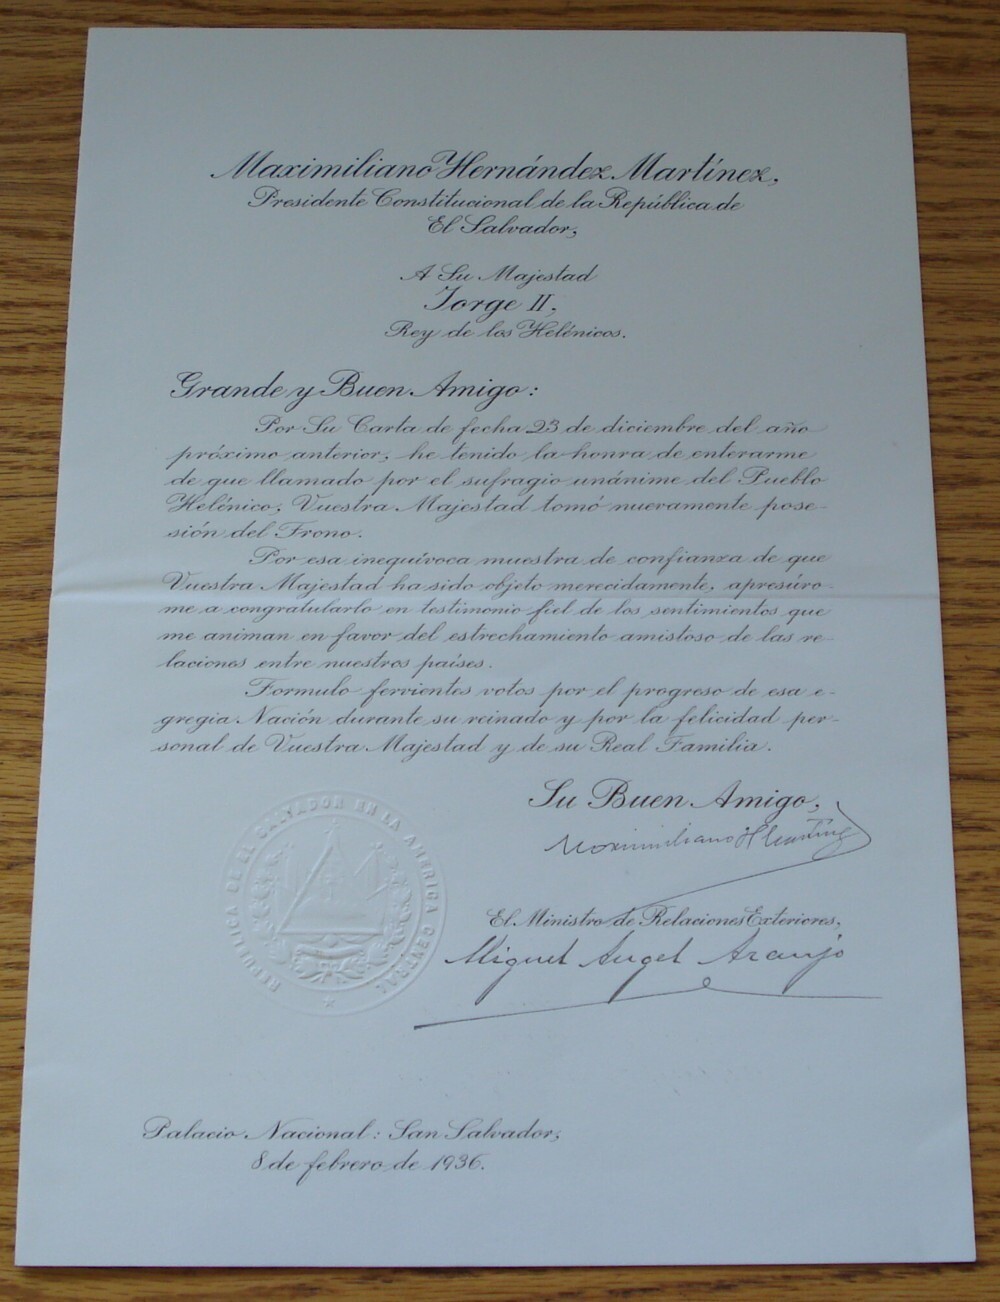 Maximiliano Hernández Martínez,
Presidente Constitucional de la República de
El Salvador,
A Su Majestad
Jorge II,
Rey de los Helénicos.
Grande y Buen Amigo:
Por Su Carta de fecha 23 de diciembre del año
próximo anterior, he tenido la honra de enterarme
de que llamado por el sufragio unánime del Pueblo
Helénico, Vuestra Majestad tomó nuevamente pose-
sión del Trono.
Por esa inequívoca muestra de confianza de que
Vuestra Majestad ha sido objeto merecidamente, apresúro-
me a congratularlo en testimonio fiel de los sentimientos que
me animan en favor del estrechamiento amistoso de las re-
laciones entre nuestros países.
Formulo fervientes votos por el progreso de esa e-
gregia Nación durante su reinado y por la felicidad per-
sonal de Vuestra Majestad y de su Real Familia.
Su Buen Amigo,
Maximiliano H Martínez
El Ministro de Relaciones Exteriores,
Miguel Angel Araujo
REPUBLICA DE EL SALVADOR EN LA AMERICA CENTRAL
Palacio Nacional: San Salvador,
8 de febrero de 1936.